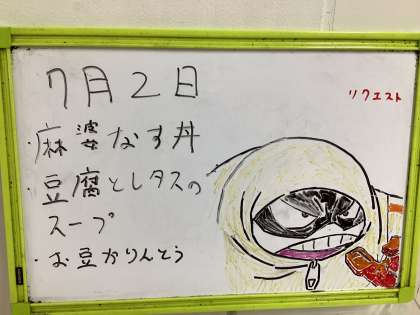 7月2日
リクエスト
・麻婆なす丼
・豆腐とレタスの
スープ
・お豆かりんとう